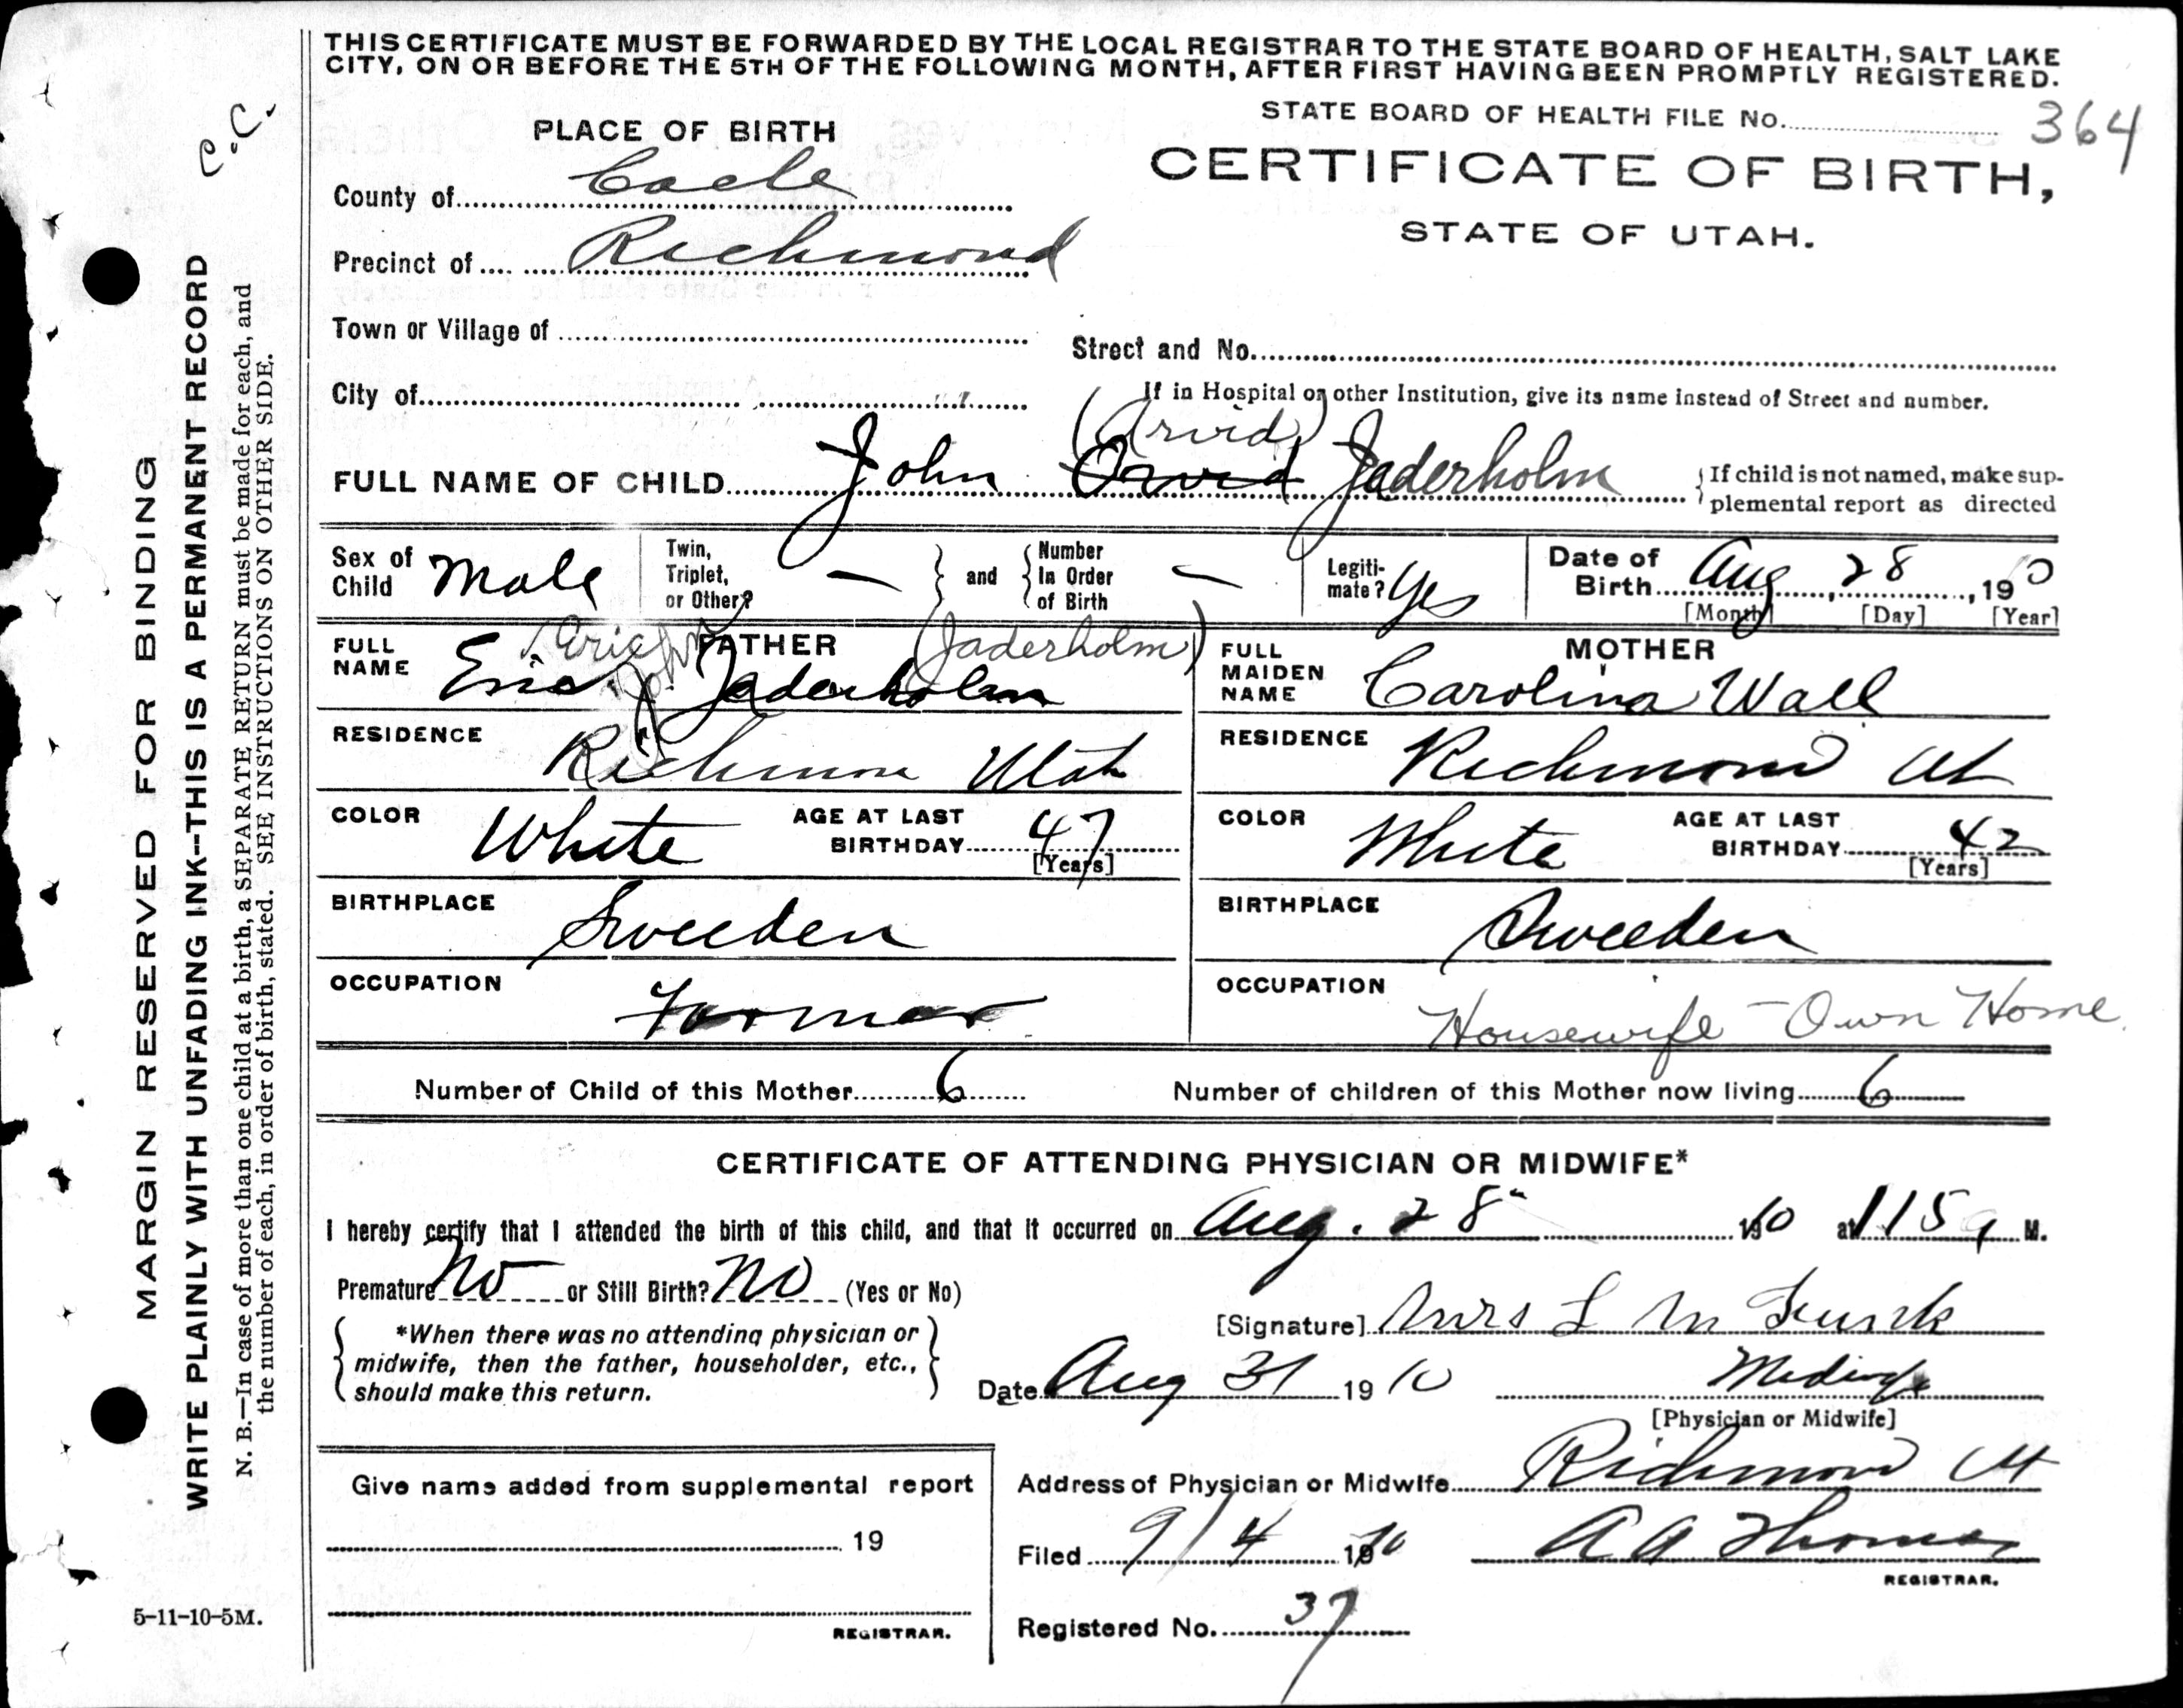 THIS CERTIFICATE MUST BE FORWARDED BY THE LOCAL REGISTRAR TO THE STATE BOARD OF HEALTH, SALT LAKE
CITY, ON OR BEFORE THE 5TH OF THE FOLLOWING MONTH, AFTER FIRST HAVING BEEN PROMPTLY REGISTERED.
C.C.
STATE BOARD OF HEALTH FILE No. 364
PLACE OF BIRTH
CERTIFICATE OF BIRTH,
STATE OF UTAH.
County of Cache
Precinct of Richmond
Town or Village of
Street and No.
City of
If in Hospital or other Institution, give its name instead of Street and number.
(Arvid)
FULL NAME OF CHILD John Orvid Jaderholm {If child is not named, make sup-
plemental report as directed
Sex of Child Male
Twin, Triplet, or Other? — } and { Number In Order of Birth —
Legiti-mate? Yes
Date of Birth Aug 28, 1910
[Month] [Day] [Year]
FATHER
FULL NAME Eric J Jaderholm
(Eric John Jaderholm)
MOTHER
FULL MAIDEN NAME Carolina Wall
RESIDENCE Richmond Utah
RESIDENCE Richmond Ut
COLOR White AGE AT LAST BIRTHDAY 47
[Years]
COLOR White AGE AT LAST BIRTHDAY 42
[Years]
BIRTHPLACE Sweeden
BIRTHPLACE Sweeden
OCCUPATION Farmer
OCCUPATION Housewife - Own Home
Number of Child of this Mother 6 Number of children of this Mother now living 6
CERTIFICATE OF ATTENDING PHYSICIAN OR MIDWIFE*
I hereby certify that I attended the birth of this child, and that it occurred on Aug. 28" 1910 at 115 a M.
Premature No or Still Birth? No (Yes or No)
{ *When there was no attending physician or
midwife, then the father, householder, etc.,
should make this return. }
[Signature] Mrs L M Funk
Date Aug 31 1910 Midwife
[Physician or Midwife]
Give name added from supplemental report
19
REGISTRAR.
Address of Physician or Midwife Richmond Ut
Filed 9/4 1910 A A Thomas
REGISTRAR.
Registered No. 37
MARGIN RESERVED FOR BINDING
WRITE PLAINLY WITH UNFADING INK--THIS IS A PERMANENT RECORD
N. B.—In case of more than one child at a birth, a SEPARATE RETURN must be made for each, and
the number of each, in order of birth, stated. SEE INSTRUCTIONS ON OTHER SIDE.
5-11-10-5M.